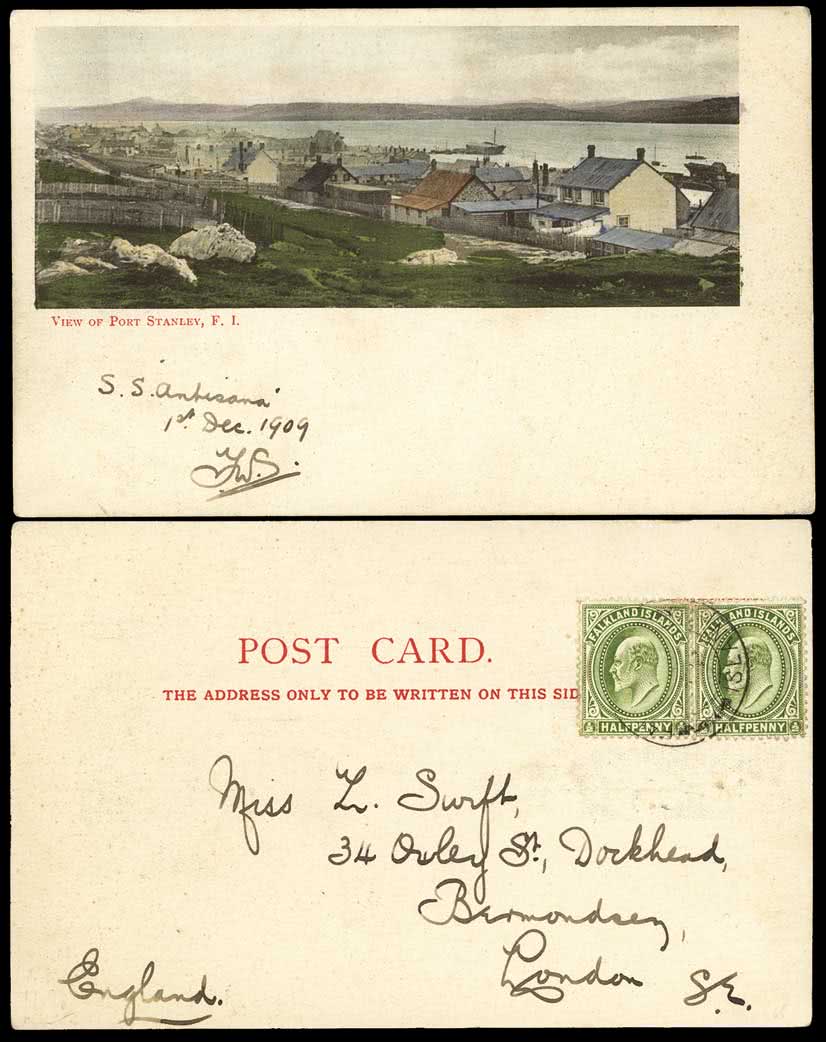 View of Port Stanley, F. I.
"S. S. Antisana"
1st Dec. 1909
POST CARD.
THE ADDRESS ONLY TO BE WRITTEN ON THIS SID
FALKLAND ISLANDS
HALFPENNY
FALKLAND ISLANDS
HALFPENNY
Miss L. Swift,
34 Oxley St., Dockhead,
Bermondsey,
London S.E.
England.